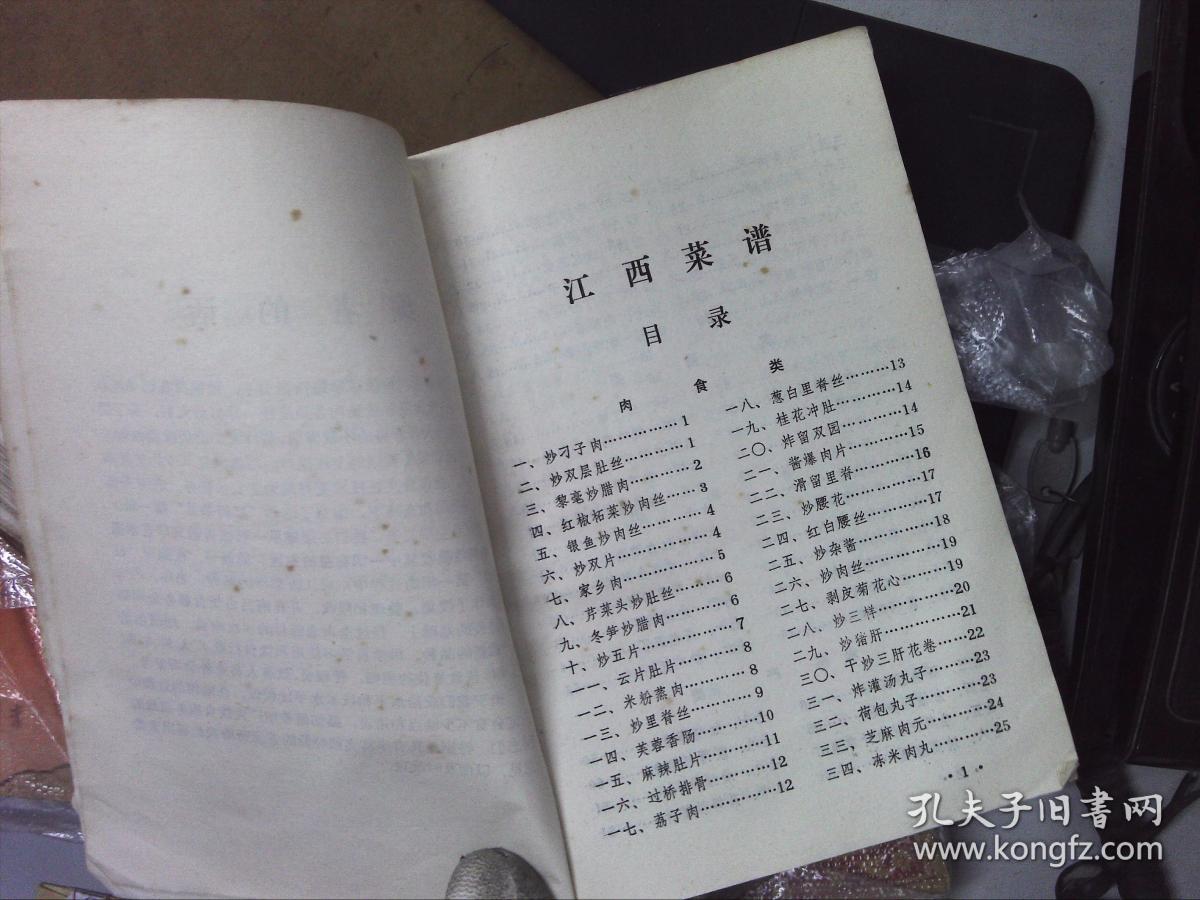 江西菜谱
目录
肉食类
一、炒刁子肉……………1
二、炒双层肚丝…………1
三、黎毫炒腊肉…………2
四、红椒柘菜炒肉丝……3
五、银鱼炒肉丝…………4
六、炒双片………………4
七、家乡肉………………5
八、芹菜头炒肚丝………6
九、冬笋炒腊肉…………6
十、炒五片………………7
一一、云片肚片…………8
一二、米粉蒸肉…………8
一三、炒里脊丝…………9
一四、芙蓉香肠…………10
一五、麻辣肚片…………11
一六、过桥排骨…………12
一七、荔子肉……………12
一八、葱白里脊丝………13
一九、桂花冲肚…………14
二〇、炸留双园…………14
二一、酱爆肉片…………15
二二、滑留里脊…………16
二三、炒腰花……………17
二四、红白腰丝…………17
二五、炒杂酱……………18
二六、炒肉丝……………19
二七、剥皮菊花心………19
二八、炒三样……………20
二九、炒猪肝……………21
三〇、干炒三肝花卷……22
三一、炸灌汤丸子………23
三二、荷包丸子…………23
三三、芝麻肉元…………24
三四、冻米肉丸…………25
·1·
孔夫子旧书网
www.kongfz.com